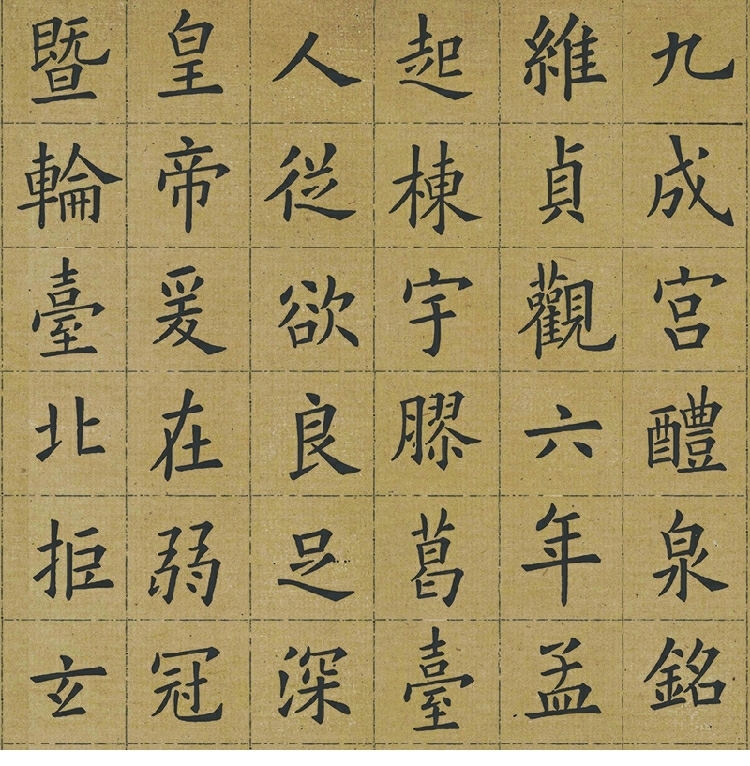 九成宮醴泉銘
維貞觀六年孟
起棟宇膠葛臺
人從欲良足深
皇帝爰在弱冠
暨輪臺北拒玄